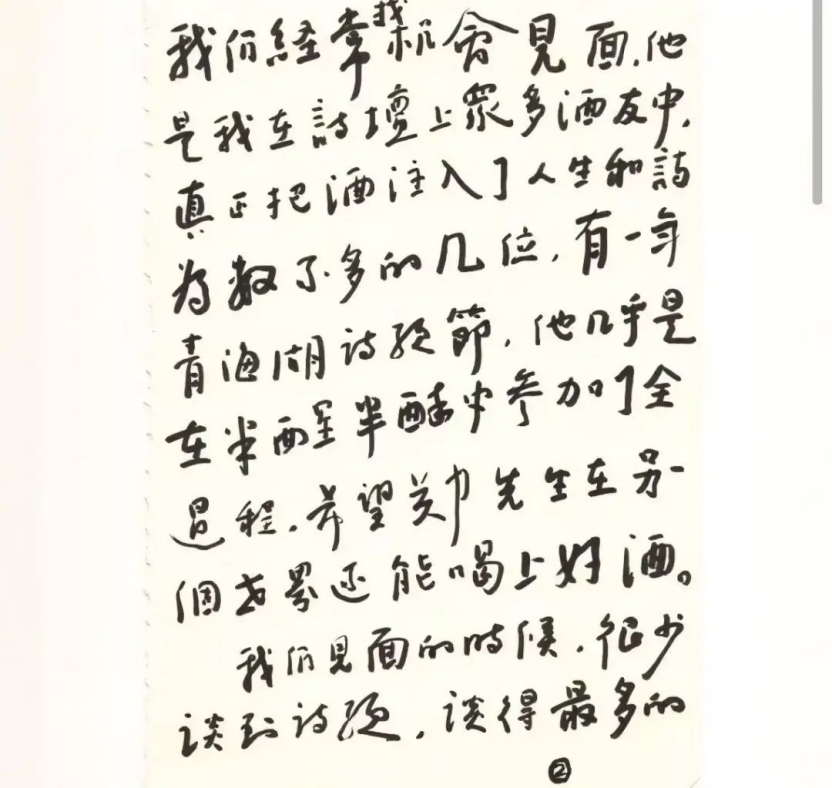 我们經常找机會見面，他
是我在詩壇上衆多酒友中，
真正把酒注入了人生和詩
为数不多的几位，有一年
青海湖诗歌節，他几乎是
在半醒半醉中参加了全
過程，希望郑先生在另一
個世界还能喝上好酒。
我们見面的時候，很少
谈到诗歌，谈得最多的
②